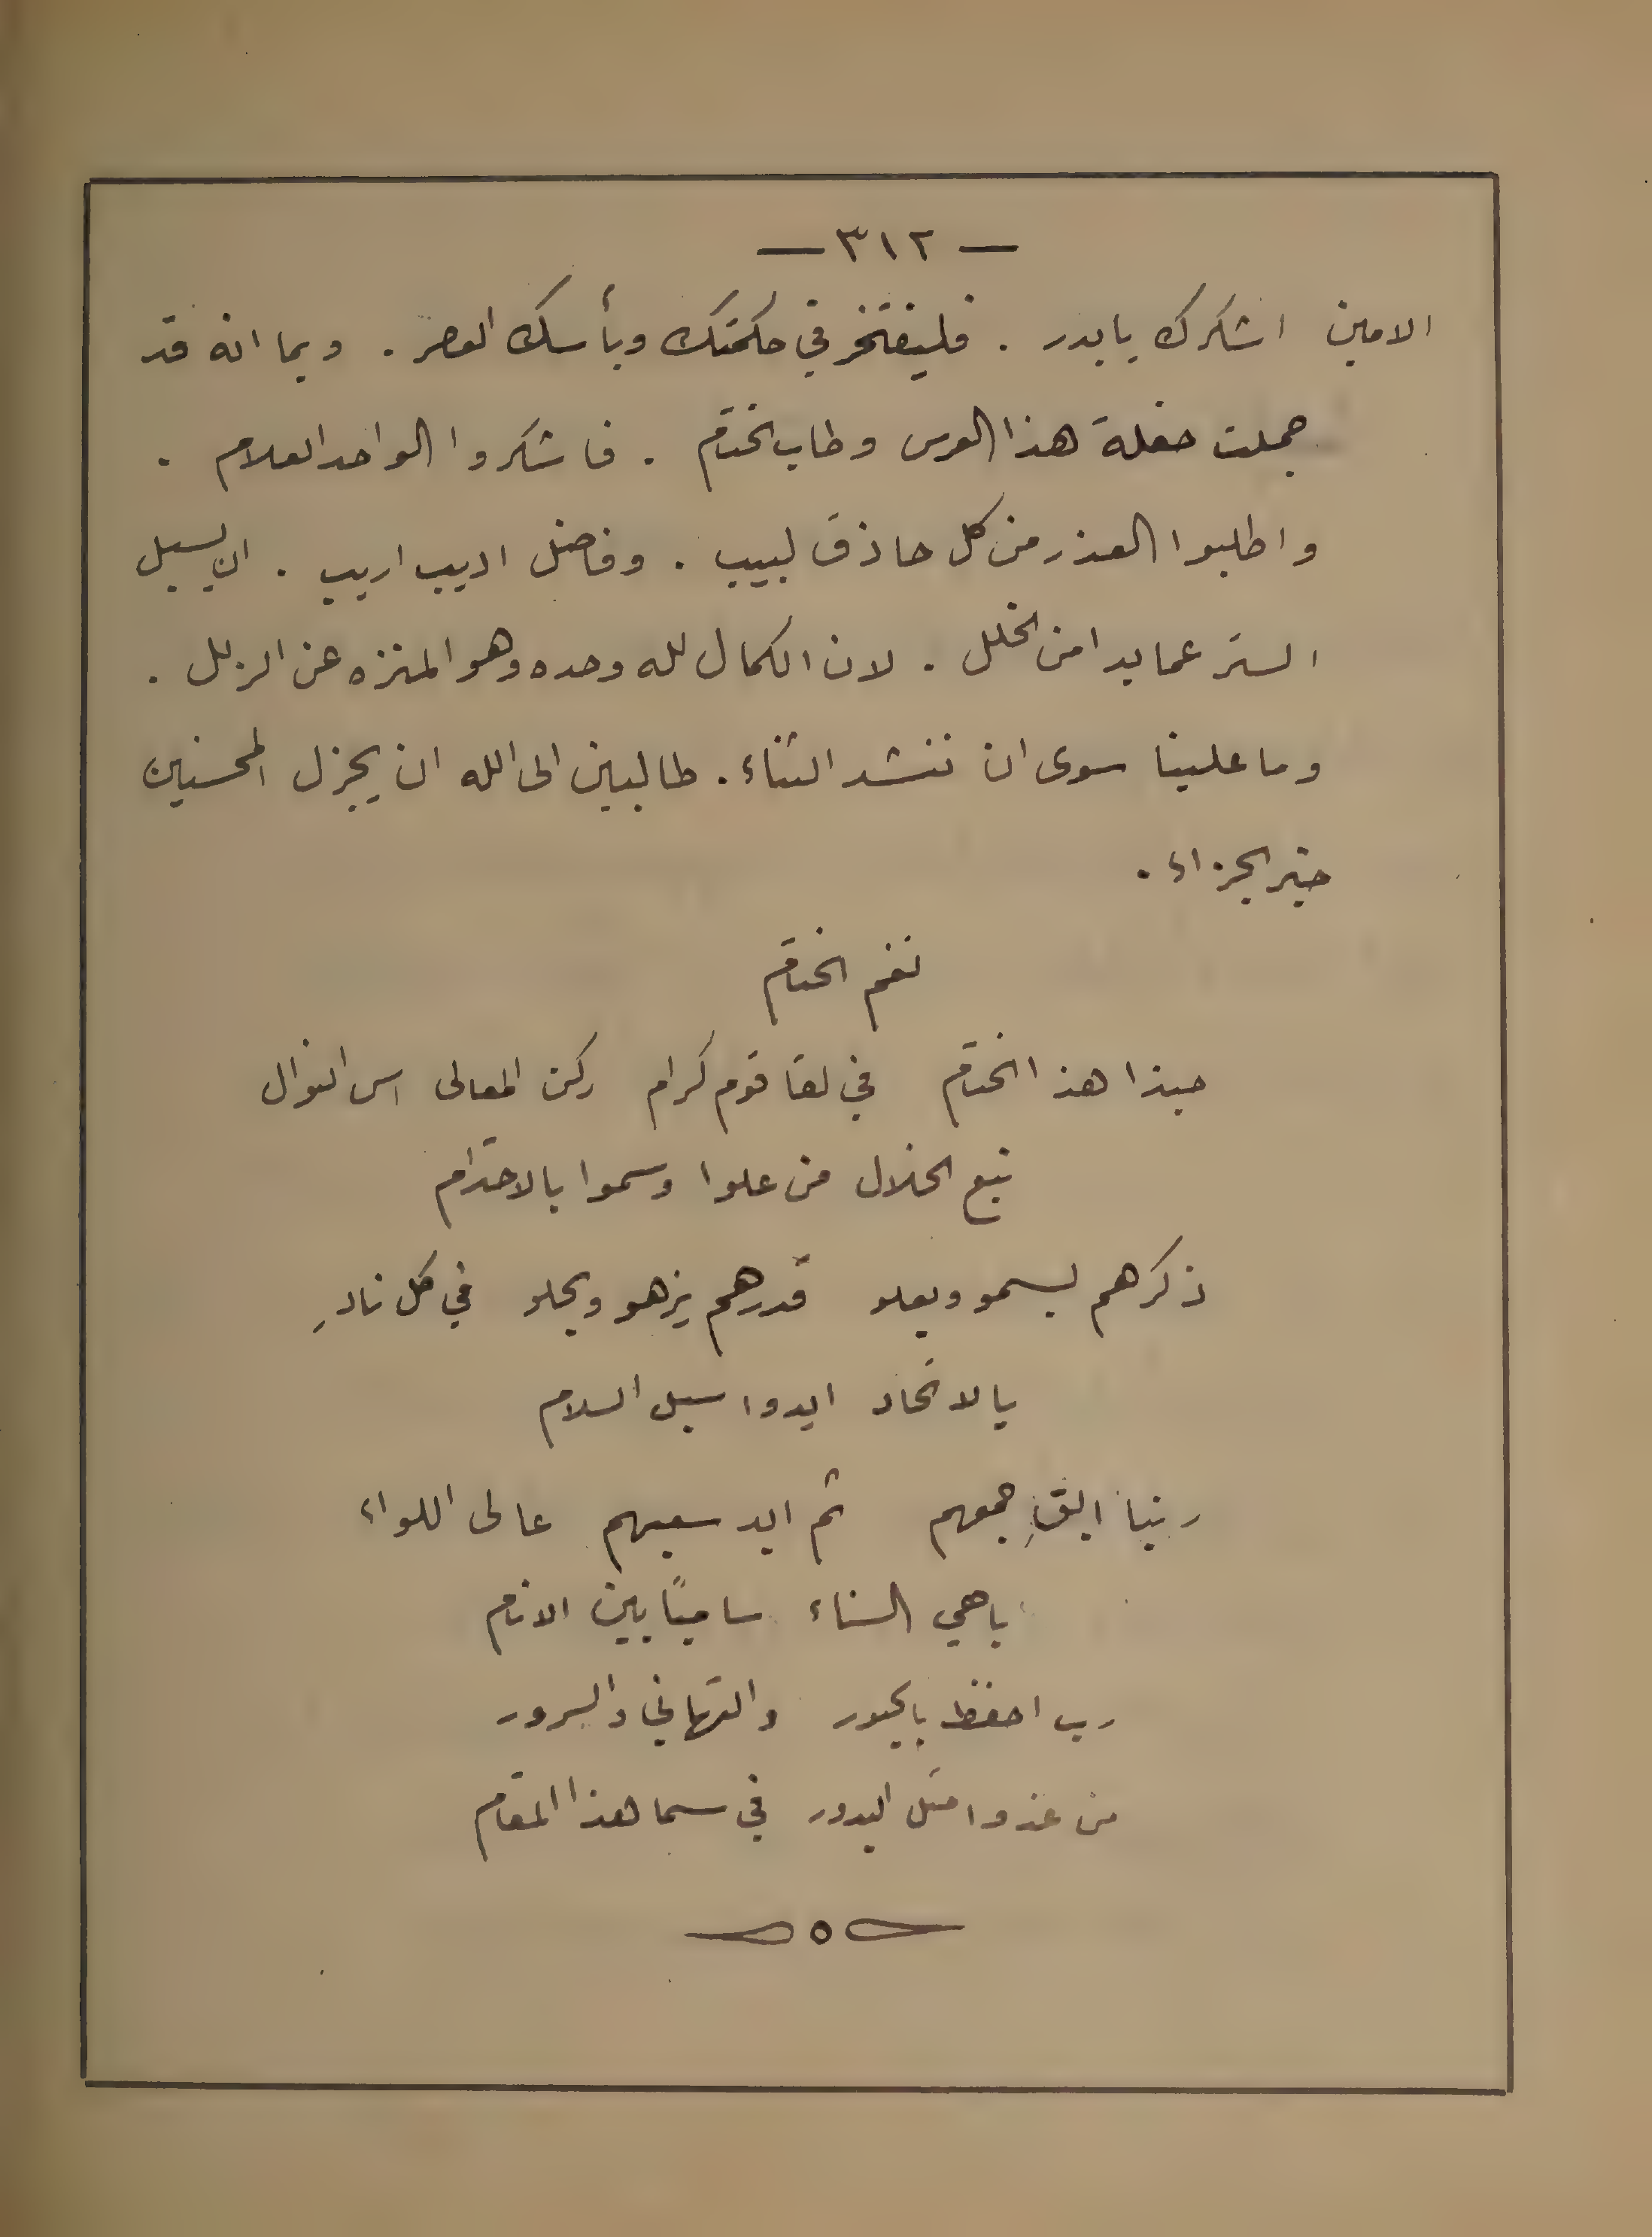 — ٣١٢ —
الامين اشكرك يا بدر . فليفتخر في حكمتك وبأسك العصر . وبما انه قد
جملت حفلة هذا العرس وطاب الختام . فاشكروا الواحد العلام .
واطلبوا العذر من كل حاذق لبيب . وفاضل اديب اريب . ان يسبل
الستر عما بدا من الخلل . لان الكمال لله وحده وهو المنزه عن الزلل .
وما علينا سوى ان ننشد الثناء . طالبين الى الله ان يجزل المحسنين
خير الجزاء .
نغم الختام
حبذا هذا الختام في لقا قوم كرام ركن المعالى اس النوال
نبع الخلال من علوا وسموا بالاحترام
ذكرهم يسمو ويعلو قدرهم يزهو ويحلو في كل نادِ
بالاتحاد ايدوا سبل السلام
ربنا ابقِ جمعهم ثم ايد سعيهم عالى اللواء
باهي السناء ساميًا بين الانام
رب احفظ بالحبور والتهاني والسرور
من غدوا مثل البدور في سما هذا المقام